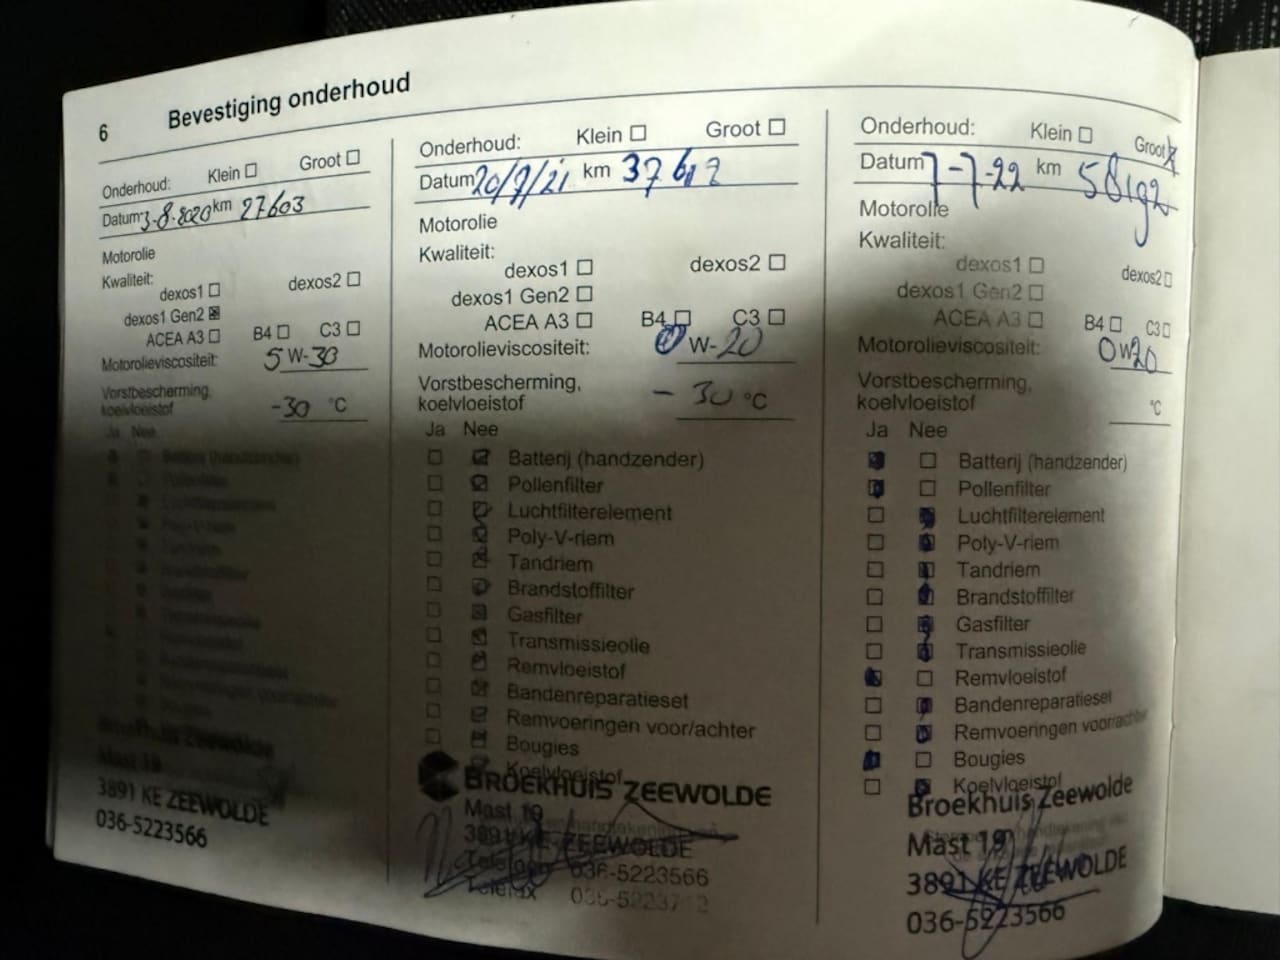 6 Bevestiging onderhoud
Onderhoud: Klein ☐ Groot ☐
Datum 3-8-2020 km 27603
Motorolie
Kwaliteit:
dexos1 ☐ dexos2 ☐
dexos1 Gen2 ☒
ACEA A3 ☐ B4 ☐ C3 ☐
Motorolieviscositeit: 5 W-30
Vorstbescherming,
koelvloeistof -30 °C
Ja Nee
Batterij (handzender)
Pollenfilter
Luchtfilterelement
Poly-V-riem
Tandriem
Brandstoffilter
Gasfilter
Transmissieolie
Remvloeistof
Bandenreparatieset
Remvoeringen voor/achter
Bougies
Broekhuis Zeewolde
Mast 19
3891 KE ZEEWOLDE
036-5223566
Onderhoud: Klein ☐ Groot ☐
Datum km 37612
Motorolie
Kwaliteit:
dexos1 ☐ dexos2 ☐
dexos1 Gen2 ☐
ACEA A3 ☐ B4 ☐ C3 ☐
Motorolieviscositeit: 0 W-20
Vorstbescherming,
koelvloeistof - 30 °C
Ja Nee
☐ ☒ Batterij (handzender)
☐ ☒ Pollenfilter
☐ ☒ Luchtfilterelement
☐ ☒ Poly-V-riem
☐ ☒ Tandriem
☐ ☒ Brandstoffilter
☐ ☒ Gasfilter
☐ ☒ Transmissieolie
☐ ☒ Remvloeistof
☐ ☒ Bandenreparatieset
☐ ☒ Remvoeringen voor/achter
☐ ☒ Bougies
Koelvloeistof
BROEKHUIS ZEEWOLDE
Mast 19
3891 KE ZEEWOLDE
Telefoon 036-5223566
Telefax
Onderhoud: Klein ☐ Groot ☒
Datum 7-7-22 km 58192
Motorolie
Kwaliteit:
dexos1 ☐ dexos2 ☐
dexos1 Gen2 ☐
ACEA A3 ☐ B4 ☐ C3 ☐
Motorolieviscositeit: 0 W 20
Vorstbescherming,
koelvloeistof °C
Ja Nee
☒ ☐ Batterij (handzender)
☒ ☐ Pollenfilter
☐ ☒ Luchtfilterelement
☐ ☒ Poly-V-riem
☐ ☒ Tandriem
☐ ☒ Brandstoffilter
☐ ☒ Gasfilter
☐ ☒ Transmissieolie
☒ ☐ Remvloeistof
☐ ☒ Bandenreparatieset
☐ ☒ Remvoeringen voor/achter
☒ ☐ Bougies
☐ ☒ Koelvloeistof
Broekhuis Zeewolde
Mast 19
3891 KE ZEEWOLDE
036-5223566